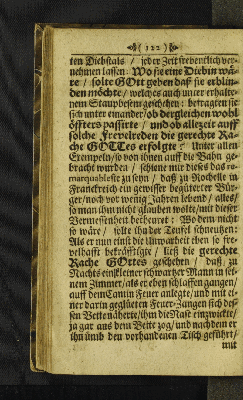 (122)
ten Diebstals / jeder Zeit freventlich ver-
nehmen lassen: Wo sie eine Diebin wä-
re / solte GOtt geben daß sie erblin-
den möchte / welches auch unter erhalte-
nem Staupbesem geschehen; betragten sie
sich unter einander / ob dergleichen wohl
öffters passirte / und ob allezeit auff
solche Frevelreden die gerechte Ra-
che GOTTes erfolgte? Unter allen
Exempeln / so von ihnen auff die Bahn ge-
bracht wurden / schiene mir dieses das re-
marquableste zu seyn / daß zu Rochelle in
Franckreich ein gewisser begüterter Bür-
ger / noch vor wenig Jahren lebend / alles /
so man ihm nicht glauben wolte / mit dieser
Vermessenheit betheuret: Wo deme nicht
so wäre / solte ihn der Teufel schneutzen:
Als er nun einst die Unwarheit eben so fre-
velhafft bekräfftigte / ließ die gerechte
Rache GOttes geschehen / daß zu
Nachts ein kleiner schwartzer Mann in sei-
nem Zimmer / als er eben schlaffen gangen /
auff dem Camin Feuer anlegte / und mit ei-
ner darin geglüeten Feuer-Zangen sich des-
sen Bette näherte / ihm die Nase einzwickte /
ja gar aus dem Bette zog / und nachdem er
ihn umb den vorhandenen Tisch geführt /
mit